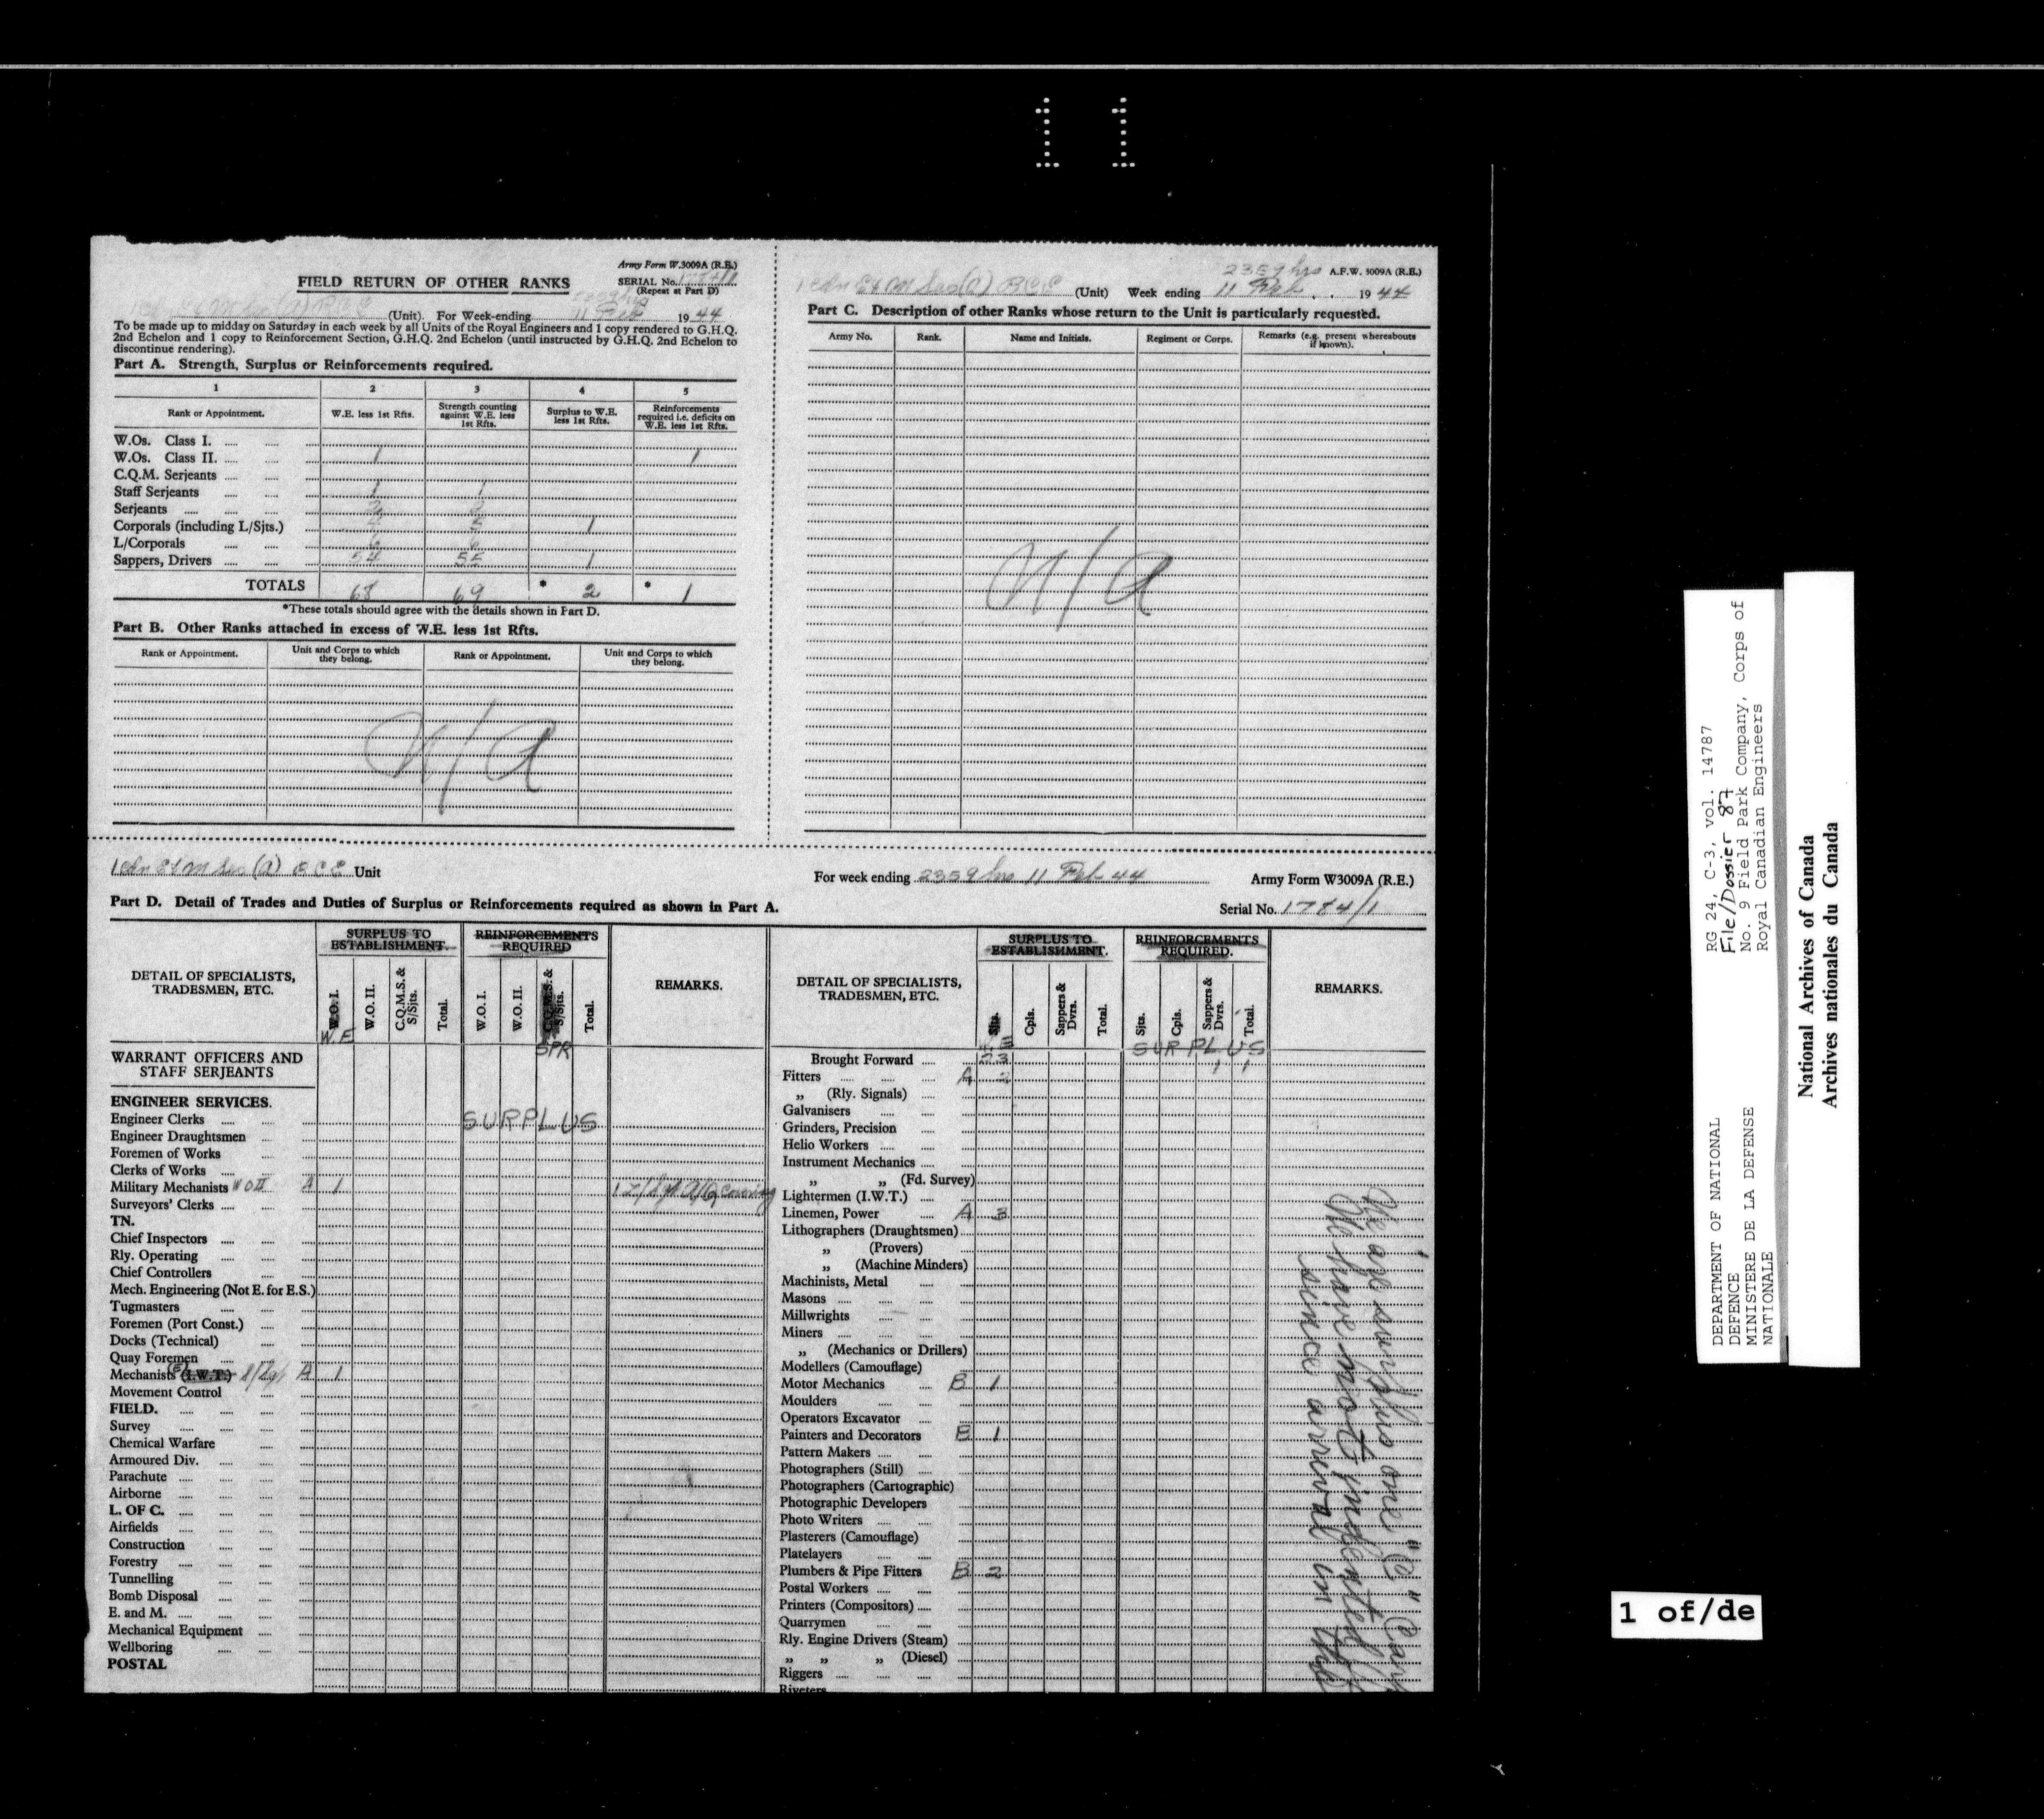 11
Army Form W.3009A (R.E.)
FIELD RETURN OF OTHER RANKS
SERIAL No.
(Repeat at Part D)
(Unit). For Week-ending 11 Feb 1944
To be made up to midday on Saturday in each week by all Units of the Royal Engineers and 1 copy rendered to G.H.Q.
2nd Echelon and 1 copy to Reinforcement Section, G.H.Q. 2nd Echelon (until instructed by G.H.Q. 2nd Echelon to
discontinue rendering).
Part A. Strength, Surplus or Reinforcements required.
1 2 3 4 5
Rank or Appointment. W.E. less 1st Rfts. Strength counting against W.E. less 1st Rfts. Surplus to W.E. less 1st Rfts. Reinforcements required i.e. deficits on W.E. less 1st Rfts.
W.Os. Class I.
W.Os. Class II. 1 1
C.Q.M. Serjeants
Staff Serjeants 1 1
Serjeants
Corporals (including L/Sjts.) 1
L/Corporals
Sappers, Drivers 54 55 1
TOTALS 68 69 * 2 * 1
*These totals should agree with the details shown in Part D.
Part B. Other Ranks attached in excess of W.E. less 1st Rfts.
Rank or Appointment. Unit and Corps to which they belong. Rank or Appointment. Unit and Corps to which they belong.
N/A
2359 hrs A.F.W. 3009A (R.E.)
1 Cdn E & M Sec (A) RCE (Unit) Week ending 11 Feb. 1944
Part C. Description of other Ranks whose return to the Unit is particularly requested.
Army No. Rank. Name and Initials. Regiment or Corps. Remarks (e.g. present whereabouts if known).
N/A
1 Cdn E & M Sec (A) RCE Unit
For week ending 2359 hrs 11 Feb 44 Army Form W3009A (R.E.)
Part D. Detail of Trades and Duties of Surplus or Reinforcements required as shown in Part A.
Serial No. 1784/1
DETAIL OF SPECIALISTS, TRADESMEN, ETC.
SURPLUS TO ESTABLISHMENT.
W.O. I. W.O. II. C.Q.M.S. & S/Sjts. Total.
REINFORCEMENTS REQUIRED
W.O. I. W.O. II. C.Q.M.S. & S/Sjts. Total.
REMARKS.
W.E SPR
WARRANT OFFICERS AND
STAFF SERJEANTS
ENGINEER SERVICES.
Engineer Clerks SURPLUS
Engineer Draughtsmen
Foremen of Works
Clerks of Works
Military Mechanists WO II A 1
Surveyors' Clerks
TN.
Chief Inspectors
Rly. Operating
Chief Controllers
Mech. Engineering (Not E. for E.S.)
Tugmasters
Foremen (Port Const.)
Docks (Technical)
Quay Foremen
Mechanists (E) (I.W.T.) S/Sgt A 1
Movement Control
FIELD.
Survey
Chemical Warfare
Armoured Div.
Parachute
Airborne
L. OF C.
Airfields
Construction
Forestry
Tunnelling
Bomb Disposal
E. and M.
Mechanical Equipment
Wellboring
POSTAL
DETAIL OF SPECIALISTS, TRADESMEN, ETC.
SURPLUS TO ESTABLISHMENT.
Sjts. Cpls. Sappers & Dvrs. Total.
REINFORCEMENTS REQUIRED.
Sjts. Cpls. Sappers & Dvrs. Total.
REMARKS.
SURPLUS
Brought Forward 23 1 1
Fitters A 2
„ (Rly. Signals)
Galvanisers
Grinders, Precision
Helio Workers
Instrument Mechanics
„ „ (Fd. Survey)
Lightermen (I.W.T.)
Linemen, Power A 3
Lithographers (Draughtsmen)
„ (Provers)
„ (Machine Minders)
Machinists, Metal
Masons
Millwrights
Miners
„ (Mechanics or Drillers)
Modellers (Camouflage)
Motor Mechanics B 1
Moulders
Operators Excavator
Painters and Decorators B 1
Pattern Makers
Photographers (Still)
Photographers (Cartographic)
Photographic Developers
Photo Writers
Plasterers (Camouflage)
Platelayers
Plumbers & Pipe Fitters B 2
Postal Workers
Printers (Compositors)
Quarrymen
Rly. Engine Drivers (Steam)
„ „ „ (Diesel)
Riggers
Riveters
We are surplus one "C"
We have not indented
since arrival in this
DEPARTMENT OF NATIONAL
DEFENCE
MINISTERE DE LA DEFENSE
NATIONALE
RG 24, C-3, vol. 14787
File/Dossier 87
No. 9 Field Park Company, Corps of
Royal Canadian Engineers
National Archives of Canada
Archives nationales du Canada
1 of/de